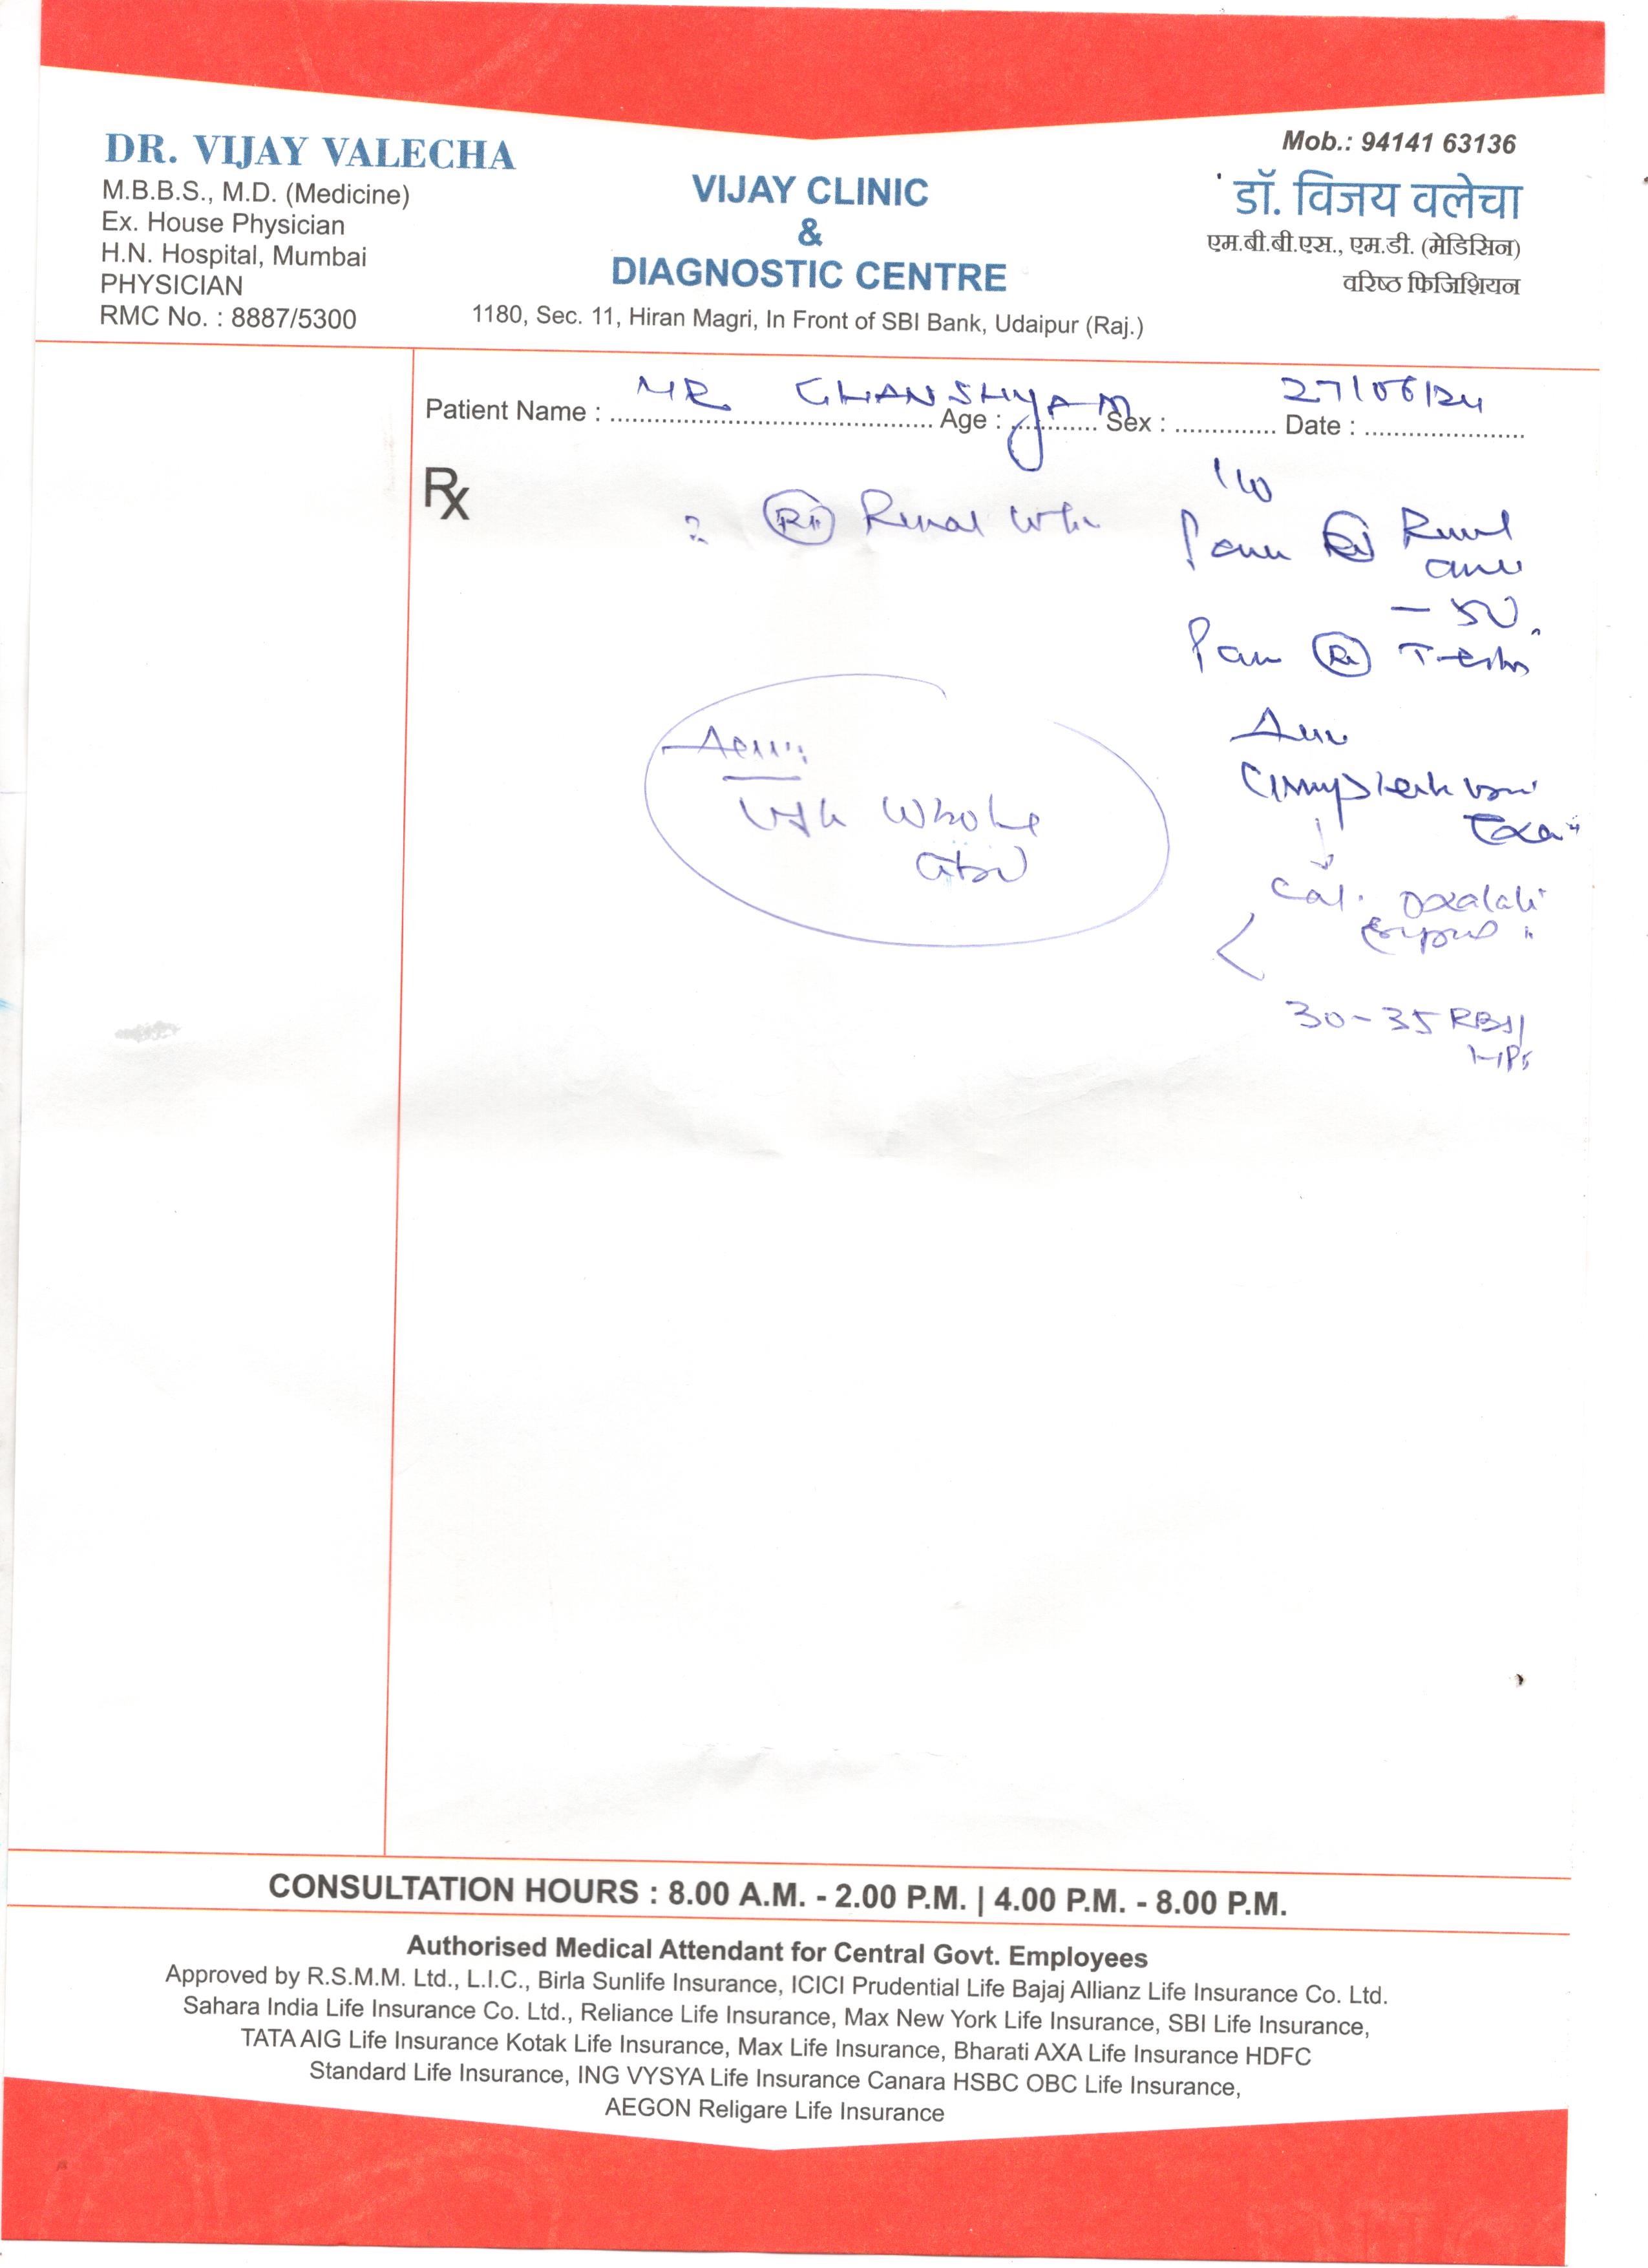 Mob.: 94141 63136
DR. VIJAY VALECHA
M.B.B.S., M.D. (Medicine)
Ex. House Physician
H.N. Hospital, Mumbai
PHYSICIAN
RMC No. : 8887/5300
VIJAY CLINIC
&
DIAGNOSTIC CENTRE
1180, Sec. 11, Hiran Magri, In Front of SBI Bank, Udaipur (Raj.)
डॉ. विजय वलेचा
एम.बी.बी.एस., एम.डी. (मेडिसिन)
वरिष्ठ फिजिशियन
Patient Name : MR GHANSHYAM Age : Sex : Date : 27/06/24
Rx
? Rt Renal
Rt
Rt
Whole
Cal. Oxalate
30-35 RBC/
HPF
CONSULTATION HOURS : 8.00 A.M. - 2.00 P.M. | 4.00 P.M. - 8.00 P.M.
Authorised Medical Attendant for Central Govt. Employees
Approved by R.S.M.M. Ltd., L.I.C., Birla Sunlife Insurance, ICICI Prudential Life Bajaj Allianz Life Insurance Co. Ltd.
Sahara India Life Insurance Co. Ltd., Reliance Life Insurance, Max New York Life Insurance, SBI Life Insurance,
TATA AIG Life Insurance Kotak Life Insurance, Max Life Insurance, Bharati AXA Life Insurance HDFC
Standard Life Insurance, ING VYSYA Life Insurance Canara HSBC OBC Life Insurance,
AEGON Religare Life Insurance